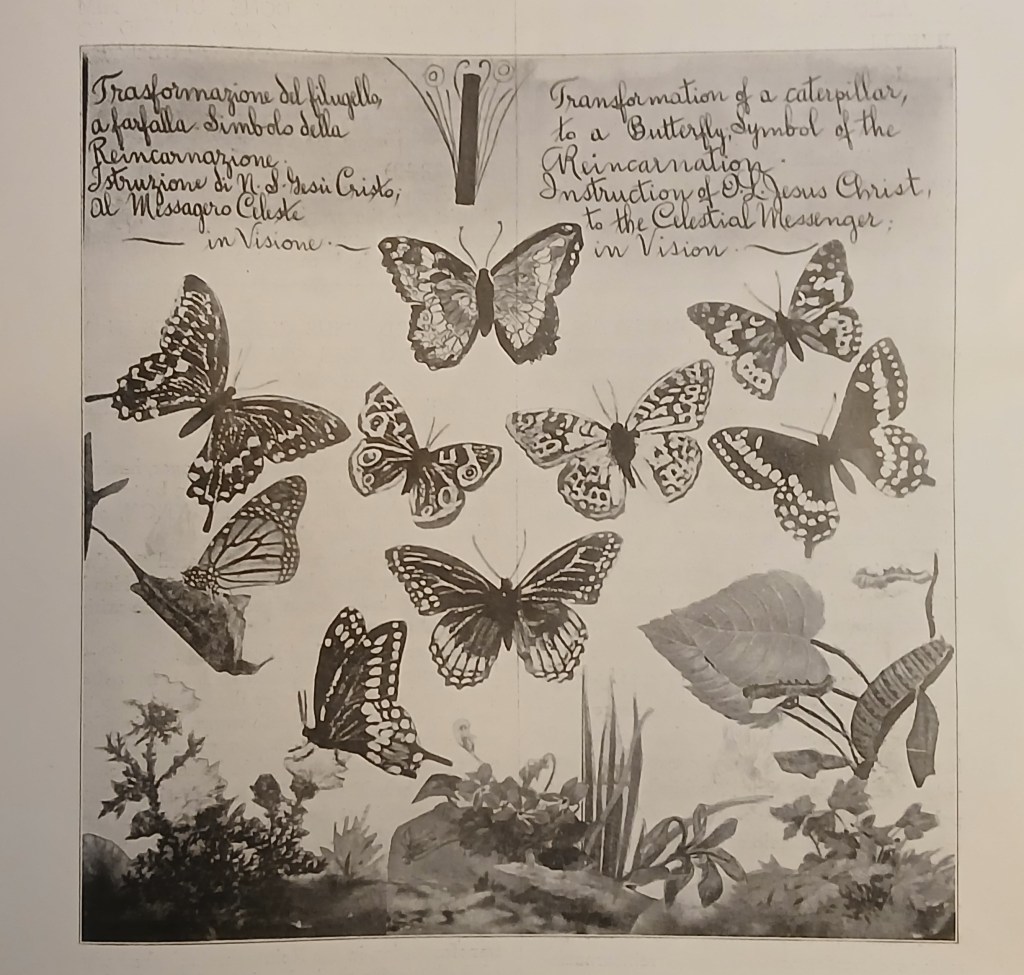 Trasformazione del filugello,
a farfalla. Simbolo della
Reincarnazione.
Istruzione di N. S. Gesù Cristo,
al Messagero Celeste
in Visione.
Transformation of a caterpillar,
to a Butterfly, Symbol of the
Reincarnation.
Instruction of O. L. Jesus Christ,
to the Celestial Messenger;
in Vision